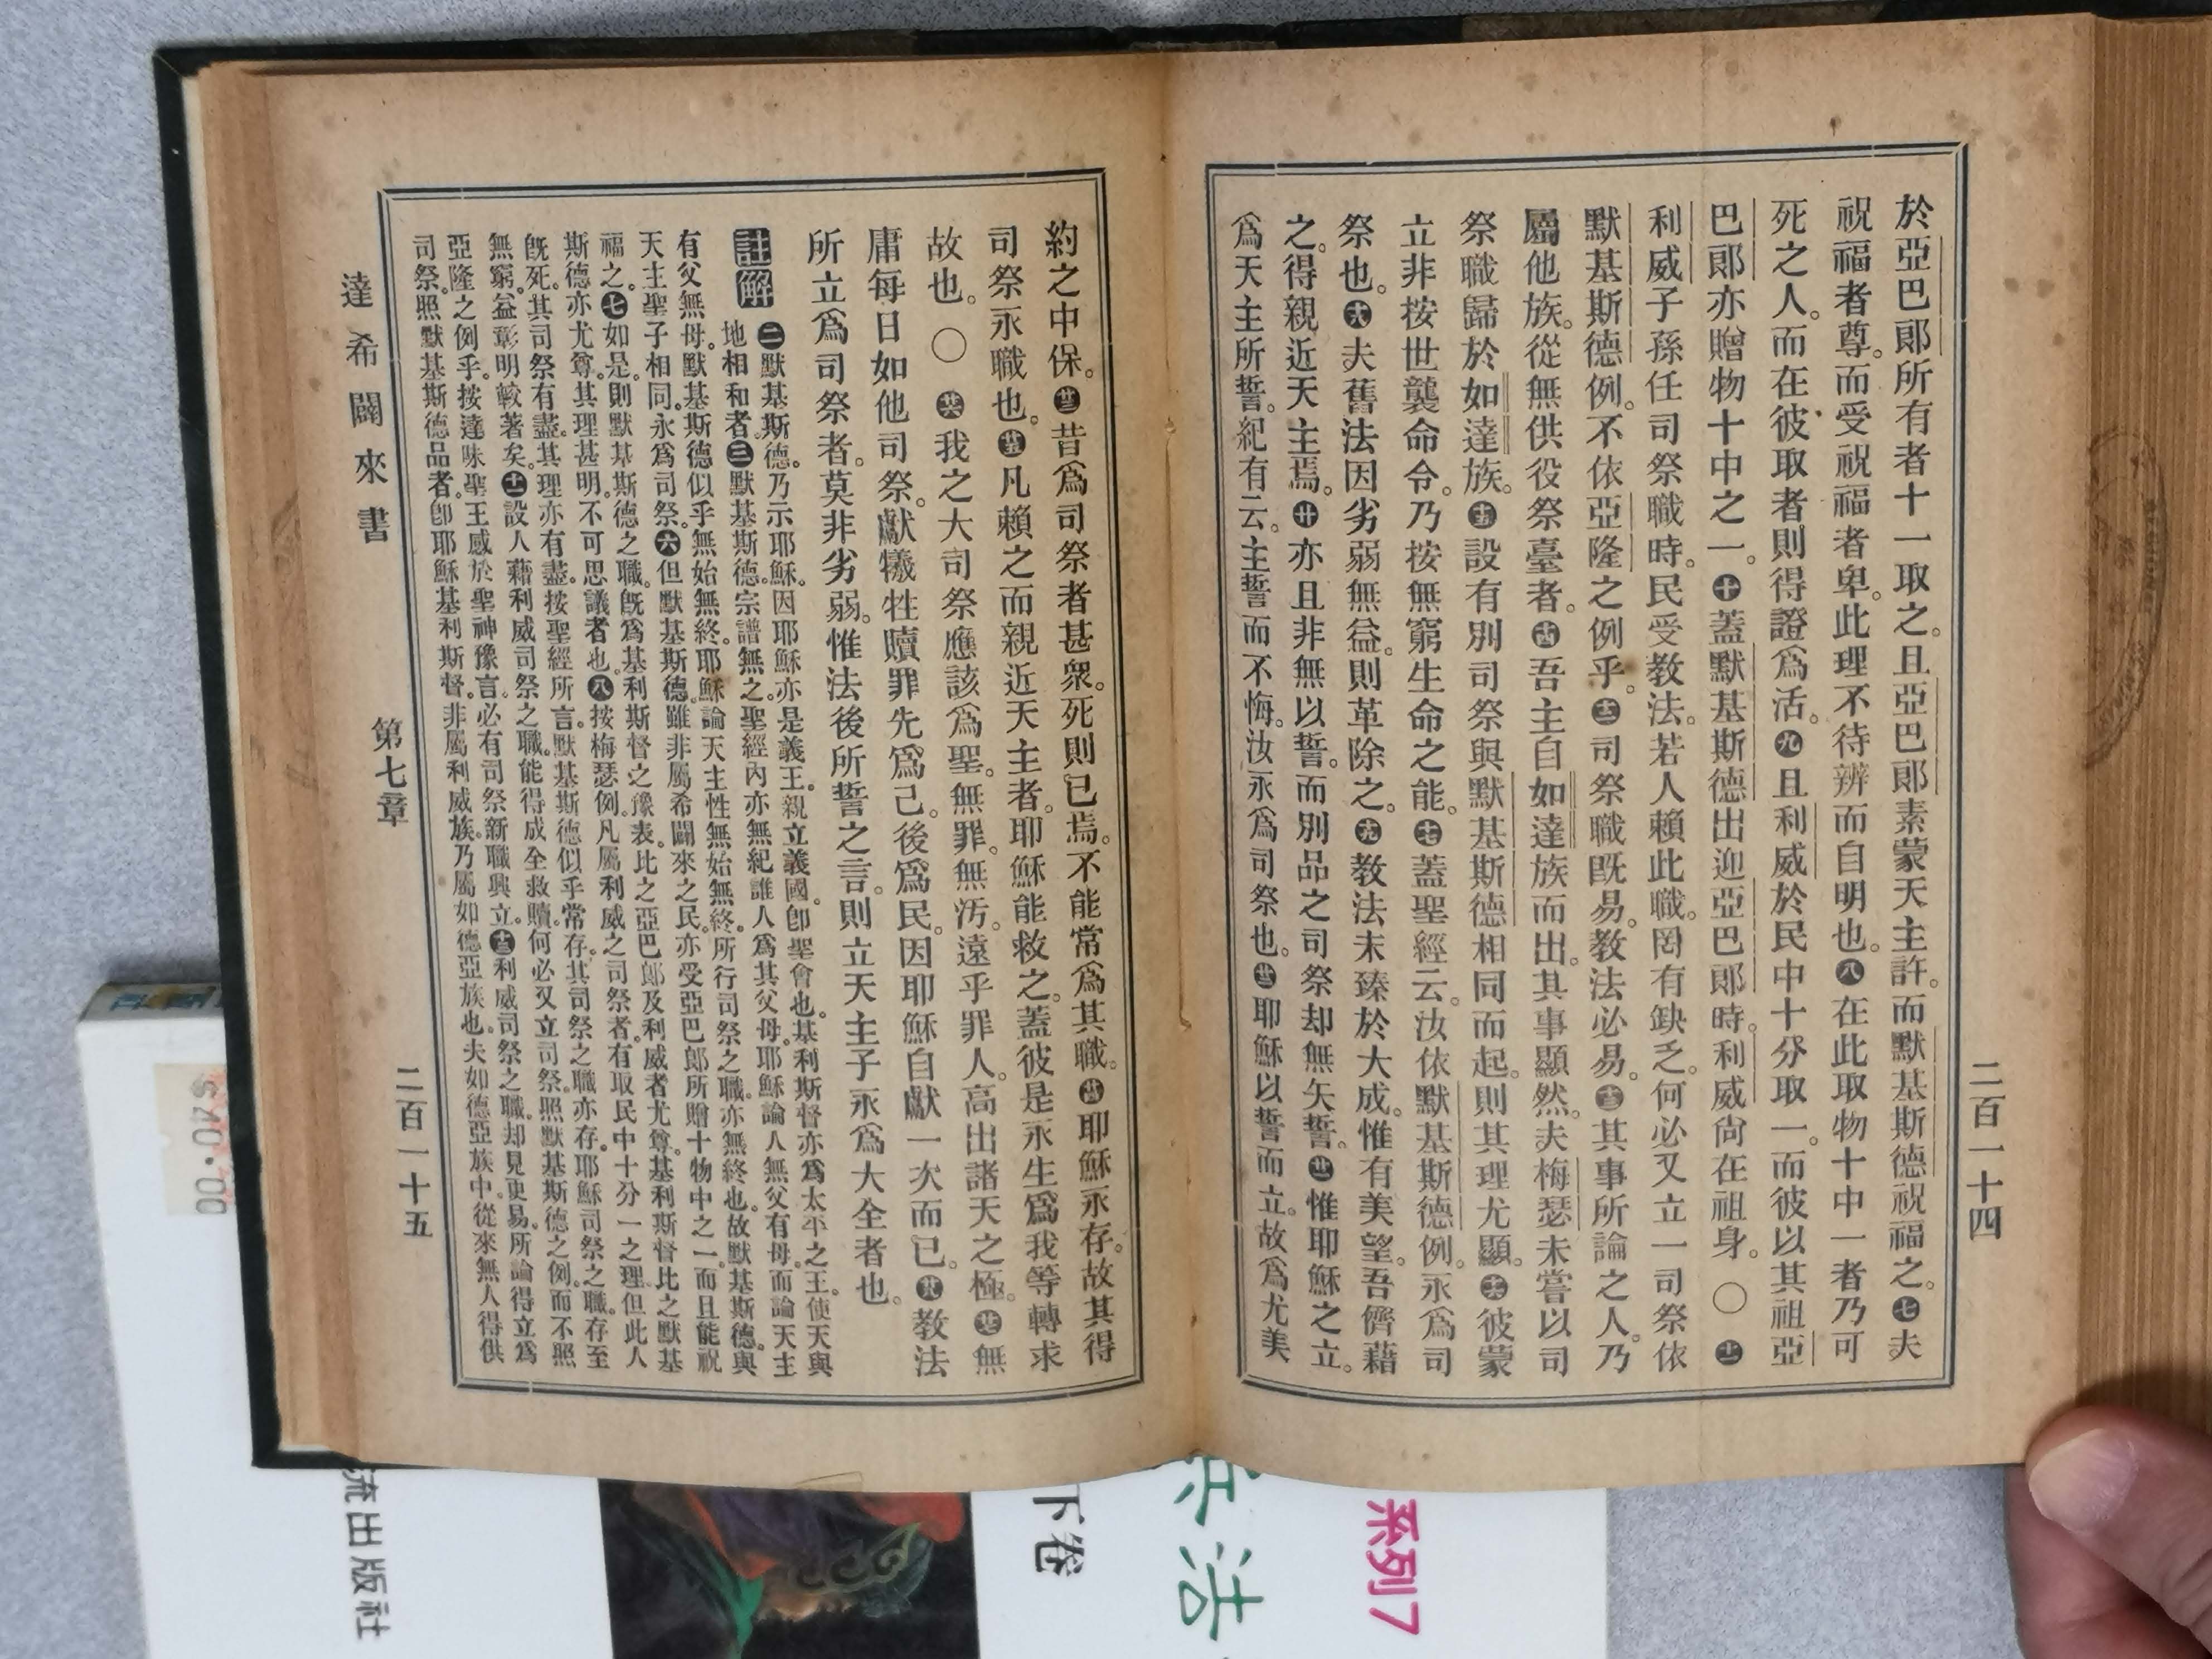 於亞巴郞所有者十一取之。且亞巴郞素蒙天主許。而默基斯德祝福之。㊆夫
祝福者尊。而受祝福者卑。此理不待辨而自明也。㊇在此取物十中一者乃可
死之人。而在彼取者則得證爲活。㊈且利威於民中十分取一。而彼以其祖亞
巴郞亦贈物十中之一。㊉蓋默基斯德出迎亞巴郞時。利威尙在祖身。〇十一
利威子孫任司祭職時。民受敎法。若人賴此職。罔有缺乏。何必又立一司祭依
默基斯德例。不依亞隆之例乎。十二司祭職旣易。敎法必易。十三其事所論之人。乃
屬他族。從無供役祭臺者。十四吾主自如達族而出。其事顯然。夫梅瑟未嘗以司
祭職歸於如達族。十五設有別司祭與默基斯德相同而起。則其理尤顯。十六彼蒙
立非按世襲命令。乃按無窮生命之能。十七蓋聖經云。汝依默基斯德例。永爲司
祭也。十八夫舊法因劣弱無益。則革除之。十九敎法未臻於大成。惟有美望。吾儕藉
之。得親近天主焉。廿亦且非無以誓。而別品之司祭却無矢誓。廿一惟耶穌之立。
爲天主所誓。紀有云。主誓而不悔。汝永爲司祭也。廿二耶穌以誓而立。故爲尤美
二百一十四
約之中保。廿三昔爲司祭者甚衆。死則已焉。不能常爲其職。廿四耶穌永存。故其得
司祭永職也。廿五凡賴之而親近天主者。耶穌能救之。蓋彼是永生爲我等轉求
故也。〇廿六我之大司祭應該爲聖。無罪。無汚。遠乎罪人。高出諸天之極。廿七無
庸每日如他司祭。獻犧牲贖罪先爲己。後爲民。因耶穌自獻一次而已。廿八敎法
所立爲司祭者。莫非劣弱。惟法後所誓之言。則立天主子永爲大全者也。
註解 ㊁默基斯德。乃示耶穌。因耶穌亦是義王。親立義國。卽聖會也。基利斯督亦爲太平之王。使天與
地相和者。㊂默基斯德。宗譜無之。聖經內亦無紀誰人爲其父母。耶穌論人無父有母。而論天主
有父無母。默基斯德似乎無始無終。耶穌論天主性無始無終。所行司祭之職。亦無終也。故默基斯德。與
天主聖子相同。永爲司祭。㊅但默基斯德。雖非屬希闢來之民。亦受亞巴郞所贈十物中之一。而且能祝
福之。㊆如是。則默基斯德之職。旣爲基利斯督之豫表。比之亞巴郞及利威者尤尊。基利斯督比之默基
斯德亦尤尊。其理甚明。不可思議者也。㊇按梅瑟例。凡屬利威之司祭者。有取民中十分一之理。但此人
旣死。其司祭有盡。其理亦有盡。按聖經所言。默基斯德似乎常存。其司祭之職亦存。耶穌司祭之職。存至
無窮。益彰明較著矣。十一設人藉利威司祭之職。能得成全救贖。何必又立司祭。照默基斯德之例。而不照
亞隆之例乎。按達味聖王感於聖神豫言。必有司祭新職興立。十三利威司祭之職。却見更易。所論得立爲
司祭。照默基斯德品者。卽耶穌基利斯督。非屬利威族。乃屬如德亞族也。夫如德亞族中。從來無人得供
達希闢來書
第七章
二百一十五
$40.00
流出版社
下卷
兵法
系列7